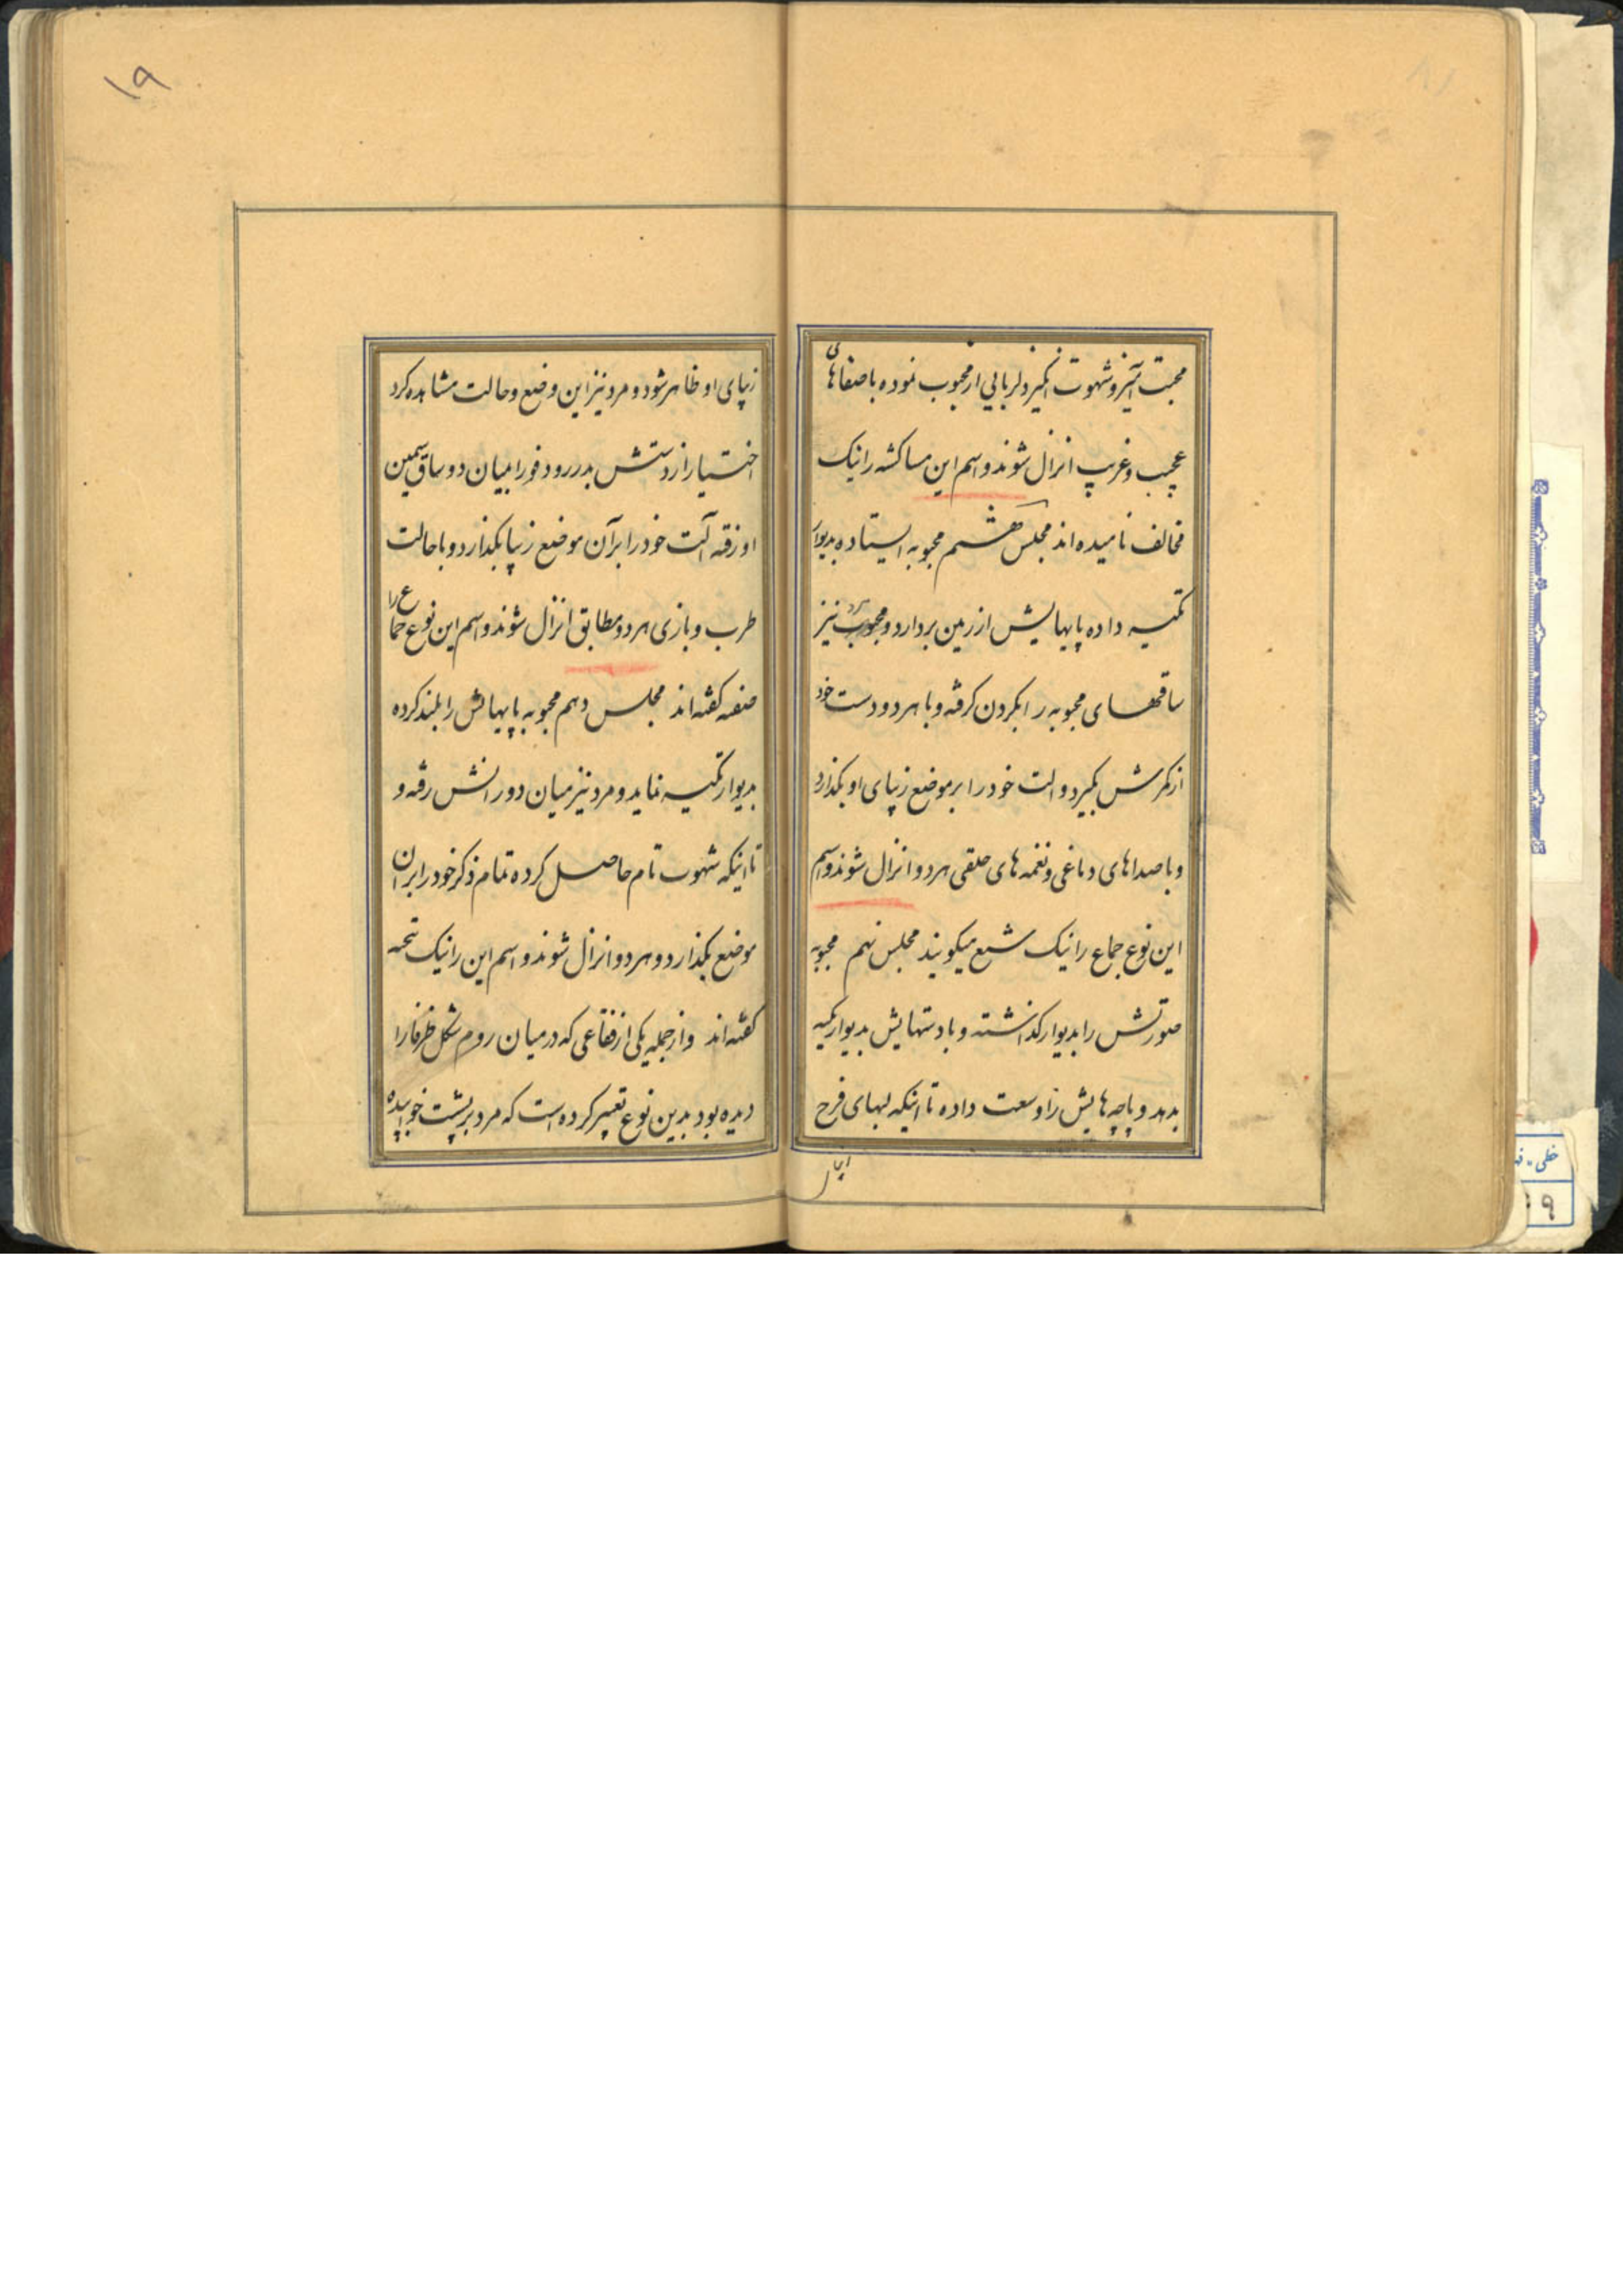 محبت آمیز و شهوت انگیز و دلربایی از محبوب نموده با صفاهای
عجیب و غریب انزال شوند و اسم این مساکشه را نیک
مخالف نامیده‌اند مجلس هشتم محبوبه ایستاده بدیوار
تکیه داده پایهایش از زمین بردارد و محبوب نیز
ساقهای محبوبه را بگردن گرفته و با هر دو دست خود
از کمرش بگیرد و الت خود را بر موضع زیبای او بگذارد
و با صداهای دماغی و نغمه‌های حلقی هر دو انزال شوند و اسم
این نوع جماع را نیک شبع میگویند مجلس نهم محبوبه
صورتش را بدیوار گذاشته و با دستهایش بدیوار تکیه
بدهد و پاچه‌هایش را وسعت داده تا اینکه لبهای فرج
زیبای او ظاهر شود و مرد نیز این وضع و حالت مشاهده کرد
اختیار از دستش بدر رود فورا بمیان دو ساق سیمین
او رفته آلت خود را بر آن موضع زیبا بگذارد و با حالت
طرب و بازی هر دو مطابق انزال شوند و اسم این نوع جماع را
صنفه گفته‌اند مجلس دهم محبوبه پایهایش را بلند کرده
بدیوار تکیه نماید و مرد نیز میان دو رانش رفته و
تا اینکه شهوت تام حاصل کرده تمام ذکر خود را بر ان
موضع بگذارد و هر دو انزال شوند و اسم این را نیک تحمه
گفته‌اند و از جمله یکی از فقاعی که در میان روم شکل ظرفا را
دیده بود بدین نوع تعبیر کرده است که مرد بر پشت خوابیده
۱۹
خطی - ف
۹